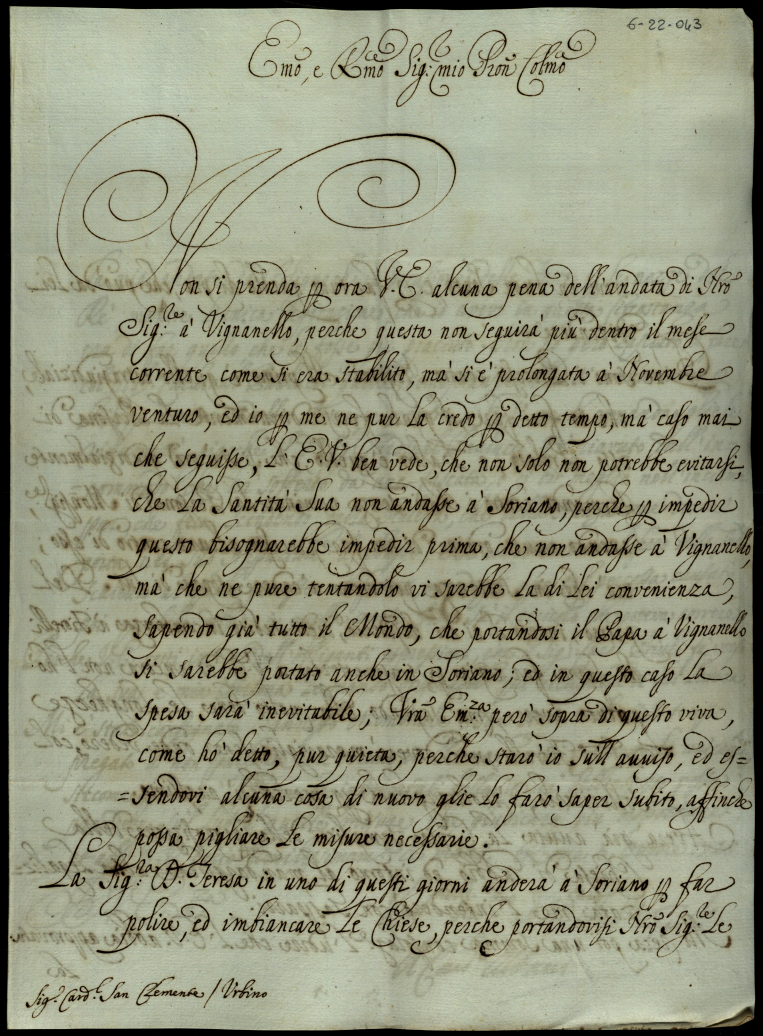 6-22-043
Emo, e Rmo Sig: mio Pron Colmo
Non si prenda p ora V.E. alcuna pena dell'andata di Nro
Sig:re à Vignanello, perche questa non seguirà più dentro il mese
corrente come si era stabilito, mà si è prolongata à Novembre
venturo, ed io p me ne pur la credo p detto tempo, mà caso mai
che seguisse, L'E.V. ben vede, che non solo non potrebbe evitarsi,
che La Santità Sua non andasse à Soriano, perche p impedir
questo bisognarebbe impedir prima, che non andasse à Vignanello,
mà che ne pure tentandolo vi sarebbe La di Lei convenienza,
sapendo già tutto il Mondo, che portandosi il Papa à Vignanello
si sarebbe portato anche in Soriano; ed in questo caso La
spesa sarà inevitabile; Vra Em:za però sopra di questo viva,
come hò detto, pur quieta, perche starò io sull'avviso, ed es=
=sendovi alcuna cosa di nuovo glie Lo farò saper subito, affinche
possa pigliare Le misure necessarie.
La Sig:ra D. Teresa in uno di questi giorni anderà à Soriano p far
polire, ed imbiancare Le Chiese, perche portandovisi Nro Sig:re Le
Sig:r Card:l San Clemente / Urbino